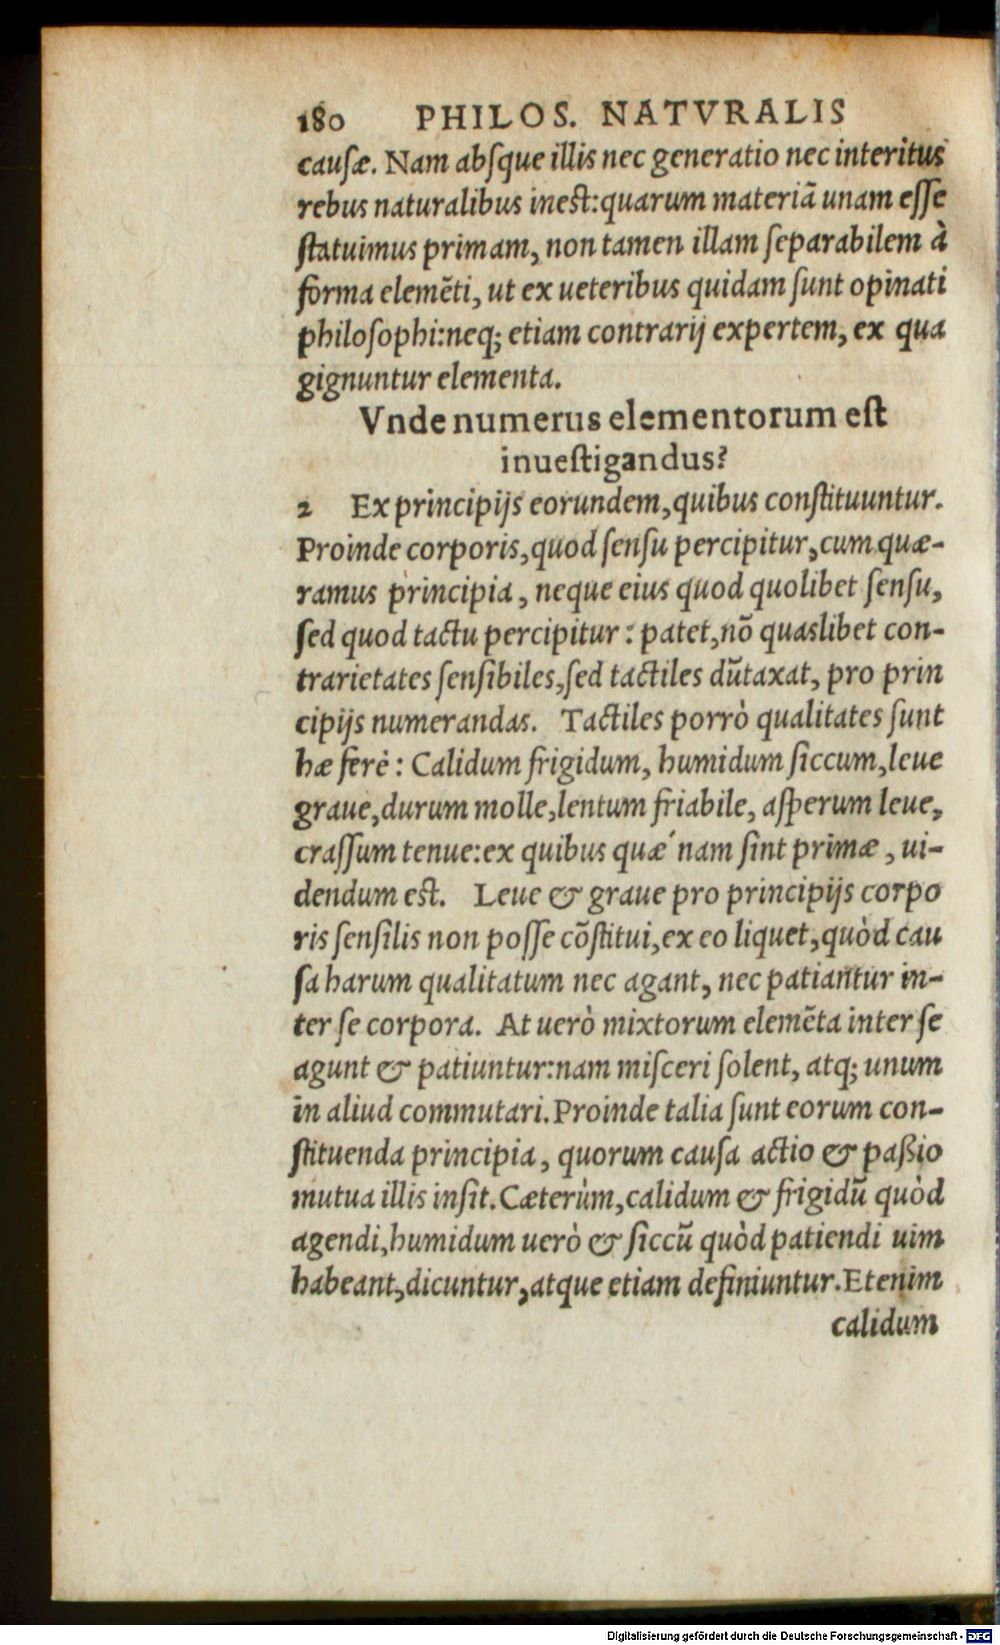 180 PHILOS. NATVRALIS
cauſæ. Nam abſque illis nec generatio nec interitus
rebus naturalibus ineſt: quarum materiã unam eſſe
ſtatuimus primam, non tamen illam ſeparabilem à
forma elemẽti, ut ex ueteribus quidam ſunt opinati
philoſophi: neq; etiam contrarij expertem, ex qua
gignuntur elementa.
Vnde numerus elementorum eſt
inueſtigandus?
2 Ex principijs eorundem, quibus conſtituuntur.
Proinde corporis, quod ſenſu percipitur, cum quæ-
ramus principia, neque eius quod quolibet ſenſu,
ſed quod tactu percipitur: patet, nõ quaslibet con-
trarietates ſenſibiles, ſed tactiles dũtaxat, pro prin
cipijs numerandas. Tactiles porrò qualitates ſunt
hæ ferè: Calidum frigidum, humidum ſiccum, leue
graue, durum molle, lentum friabile, aſperum leue,
craſſum tenue: ex quibus quæ´nam ſint primæ, ui-
dendum eſt. Leue & graue pro principijs corpo
ris ſenſilis non poſſe cõſtitui, ex eo liquet, quòd cau
ſa harum qualitatum nec agant, nec patiantur in-
ter ſe corpora. At uerò mixtorum elemẽta inter ſe
agunt & patiuntur: nam miſceri ſolent, atq; unum
in aliud commutari. Proinde talia ſunt eorum con-
ſtituenda principia, quorum cauſa actio & paßio
mutua illis inſit. Cæterùm, calidum & frigidũ quòd
agendi, humidum uerò & ſiccũ quòd patiendi uim
habeant, dicuntur, atque etiam definiuntur. Etenim
calidum
Digitalisierung gefördert durch die Deutsche Forschungsgemeinschaft - DFG